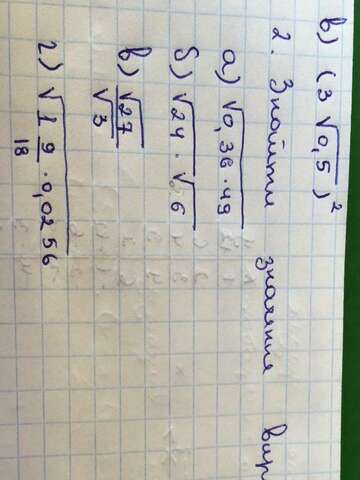 в) (3√0,5)²
2. Знайти значення вир
а) √0,36·49
б) √24 · √6
в) √27/√3
г) √1 9/18 · 0,0256